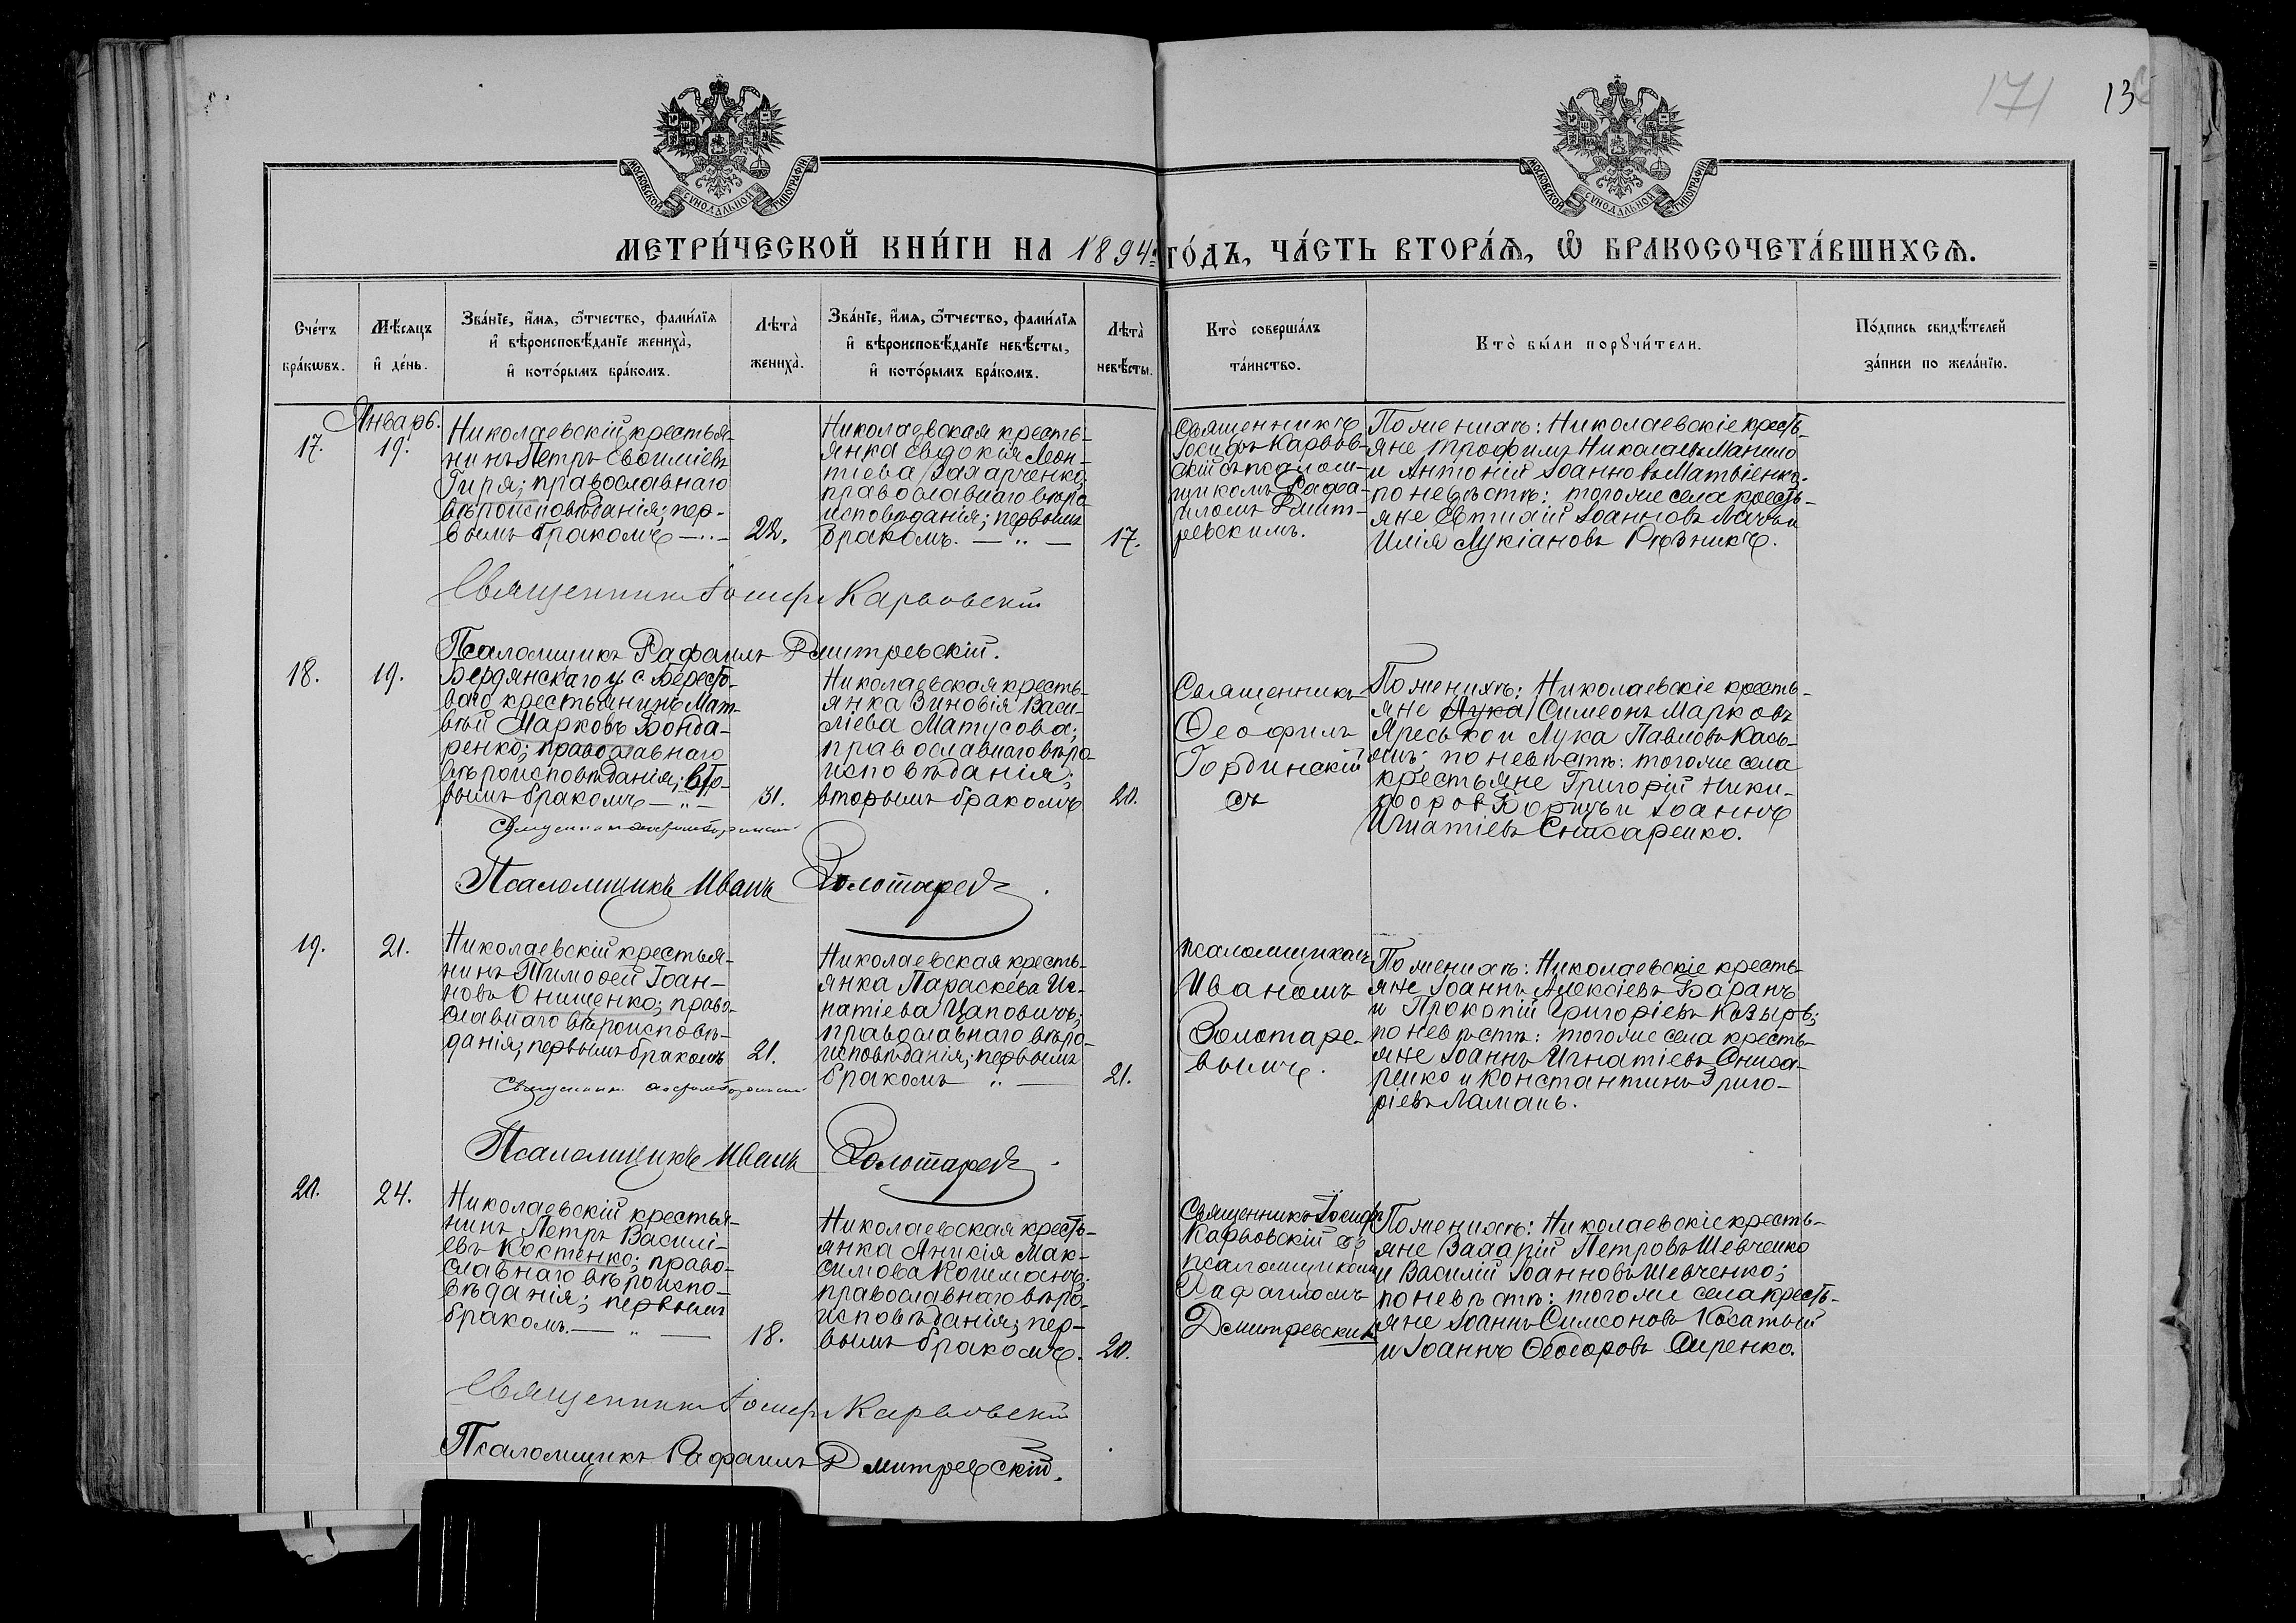 171
13
МОСКОВСКОЙ СУНОДАЛЬНОЙ ТИПОГРАФІИ
МОСКОВСКОЙ СУНОДАЛЬНОЙ ТИПОГРАФІИ
МЕТРИ́ЧЕСКОЙ КНИ́ГИ НА 1894: ГО́ДЪ, ЧА́СТЬ ВТОРА́Ѧ, Ѡ҆ БРАКОСОЧЕТА́ВШИХСѦ.
Сче́тъ
бра́кѡвъ.
Мѣ́сяцъ
и҆ де́нь.
Зва́нїе, и҆́мѧ, ѻ҆́тчество, фамѝлїѧ
и҆ вѣроисповѣ́данїе жениха̀,
и҆ кото́рымъ бра́комъ.
Лѣта̀
жениха̀.
Зва́нїе, и҆́мѧ, ѻ҆́тчество, фами́лїѧ
и҆ вѣроисповѣ́данїе невѣ́сты,
и҆ кото́рымъ бра́комъ.
Лѣта̀
невѣ́сты.
Кто̀ соверша́лъ
та́инство.
Кто̀ бы́ли порꙋчи́тели.
По́дпись свидѣ́телей
за́писи по жела́нїю.
Январь.
17.
19.
Николаевскій крестья-
нинъ Петръ Евѳиміевъ
Гиря; православнаго
вѣроисповѣданія; пер-
вымъ бракомъ
22.
Николаевская кресть-
янка Евдокія Леон-
тіева Захарченко;
православнаго вѣро-
исповѣданія; первымъ
бракомъ.
17.
Священникъ
Іосифъ Карьов-
скій съ псалом-
щикомъ Рафа-
иломъ Дмит-
ревскимъ.
По женихѣ: Николаевскіе кресть-
яне Трофимъ Николаевъ
и Антоній Іоанновъ Матвіенко;
по невѣстѣ: тогоже села кресть-
яне Евтихій Іоанновъ и
Илія Лукіановъ Рѣзникъ.
Священникъ Іосифъ Карьовскій
Псаломщикъ Рафаилъ Дмитревскій.
18.
19.
Бердянскаго у. с. Бересто-
ваго крестьянинъ Мат-
вѣй Марковъ Бонда-
ренко; православнаго
вѣроисповѣданія; вто-
вымъ бракомъ
31.
Николаевская кресть-
янка Зиновія Васи-
ліева Матусова;
православнаго вѣро-
исповѣданія;
вторымъ бракомъ
20.
Священникъ
Ѳеофилъ
Гординскій
съ
По женихѣ: Николаевскіе кресть-
яне Лука Симеонъ Марковъ
Яресько и Лука Павловъ Кась-
янъ; по невѣстѣ: тогоже села
крестьяне Григорій Ники-
форовъ и Іоаннъ
Игнатіевъ Снисаренко.
Псаломщикъ Иванъ Золотаревъ.
19.
21.
Николаевскій крестья-
нинъ Тимоѳей Іоан-
новъ Онищенко; право-
славнаго вѣроисповѣ-
данія; первымъ бракомъ
21.
Николаевская кресть-
янка Параскева Иг-
натіева Цаповичъ;
православнаго вѣро-
исповѣданія; первымъ
бракомъ
21.
псаломщикомъ
Иваномъ
Золотаре-
вымъ.
По женихѣ: Николаевскіе кресть-
яне Іоаннъ Алексіевъ Баранъ
и Прокопій Григоріевъ Козырь;
по невѣстѣ: тогоже села кресть-
яне Іоаннъ Игнатіевъ Сниса-
ренко и Константинъ Григо-
ріевъ Ламань.
Псаломщикъ Иванъ Золотаревъ.
20.
24.
Николаевскій крестья-
нинъ Петръ Василі-
евъ Костенко; право-
славнаго вѣроиспо-
вѣданія; первымъ
бракомъ.
18.
Николаевская кресть-
янка Анисія Мак-
симова Кошманъ;
православнаго вѣро-
исповѣданія; пер-
вымъ бракомъ.
20.
Священникъ Іосифъ
Карьовскій съ
псаломщикомъ
Рафаиломъ
Дмитревскимъ
По женихѣ: Николаевскіе кресть-
яне Захарій Петровъ Шевченко
и Василій Іоанновъ Шевченко;
по невѣстѣ: тогоже села кресть-
яне Іоаннъ Симеоновъ Косатый
и Іоаннъ Ѳеодоровъ Сиренко.
Священникъ Іосифъ Карьовскій
Псаломщикъ Рафаилъ Дмитревскій.